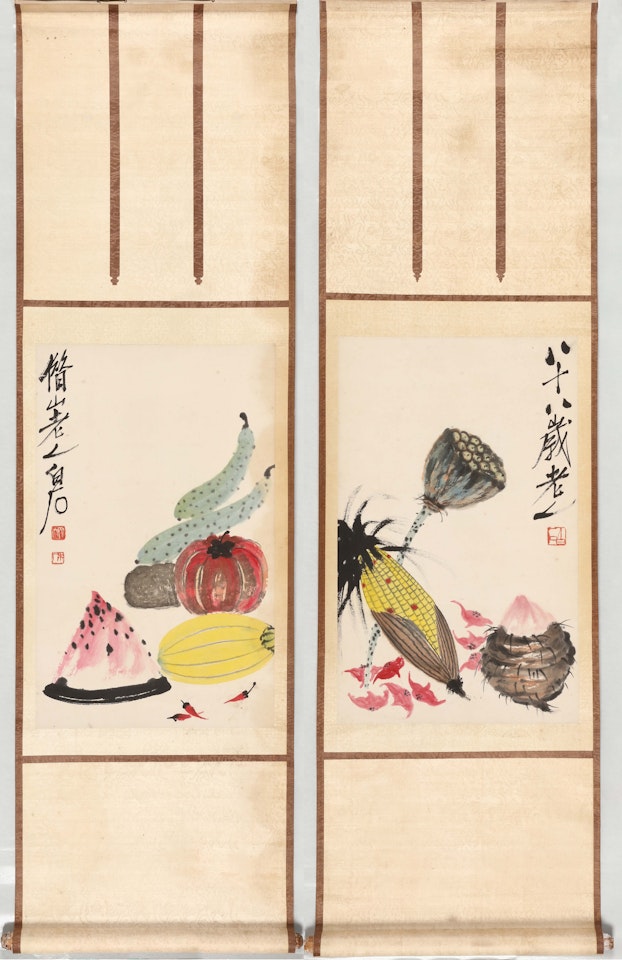 借山老人白石
八十八歲老人